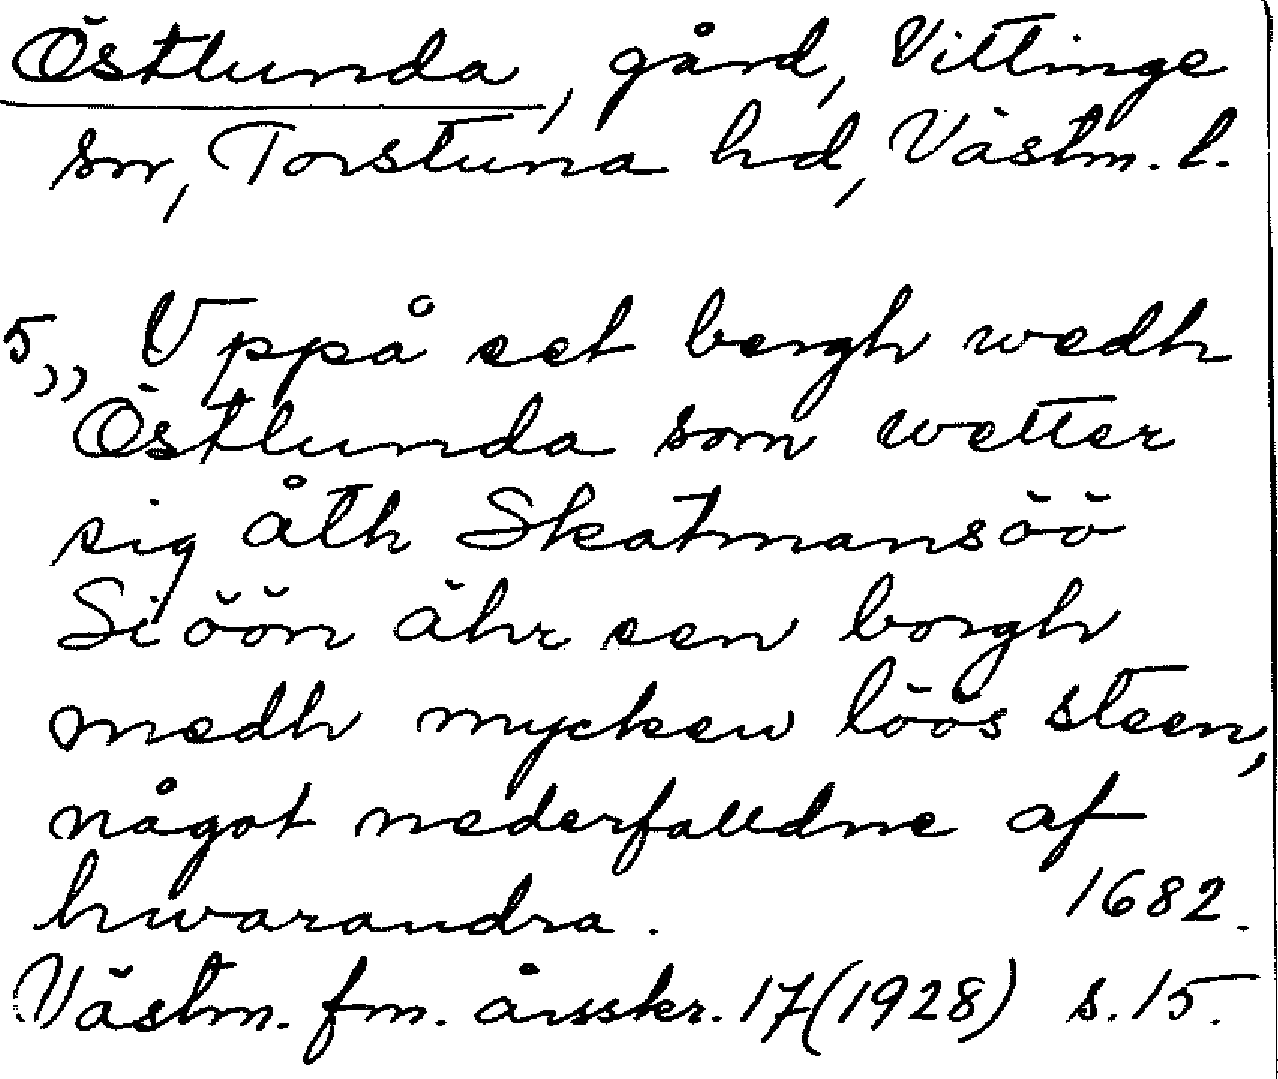 Östlunda, gård, Vittinge
sn, Torstuna hd, Västm. l.
5,, Uppå eet bergh wedh
Östlunda som wetter
sig åth Skatmansöö
Siöön ähr een borgh
medh mycken löös steen,
något nederfalldne af
hwarandra. 1682.
Västm. fm. årsskr. 17(1928) s. 15.